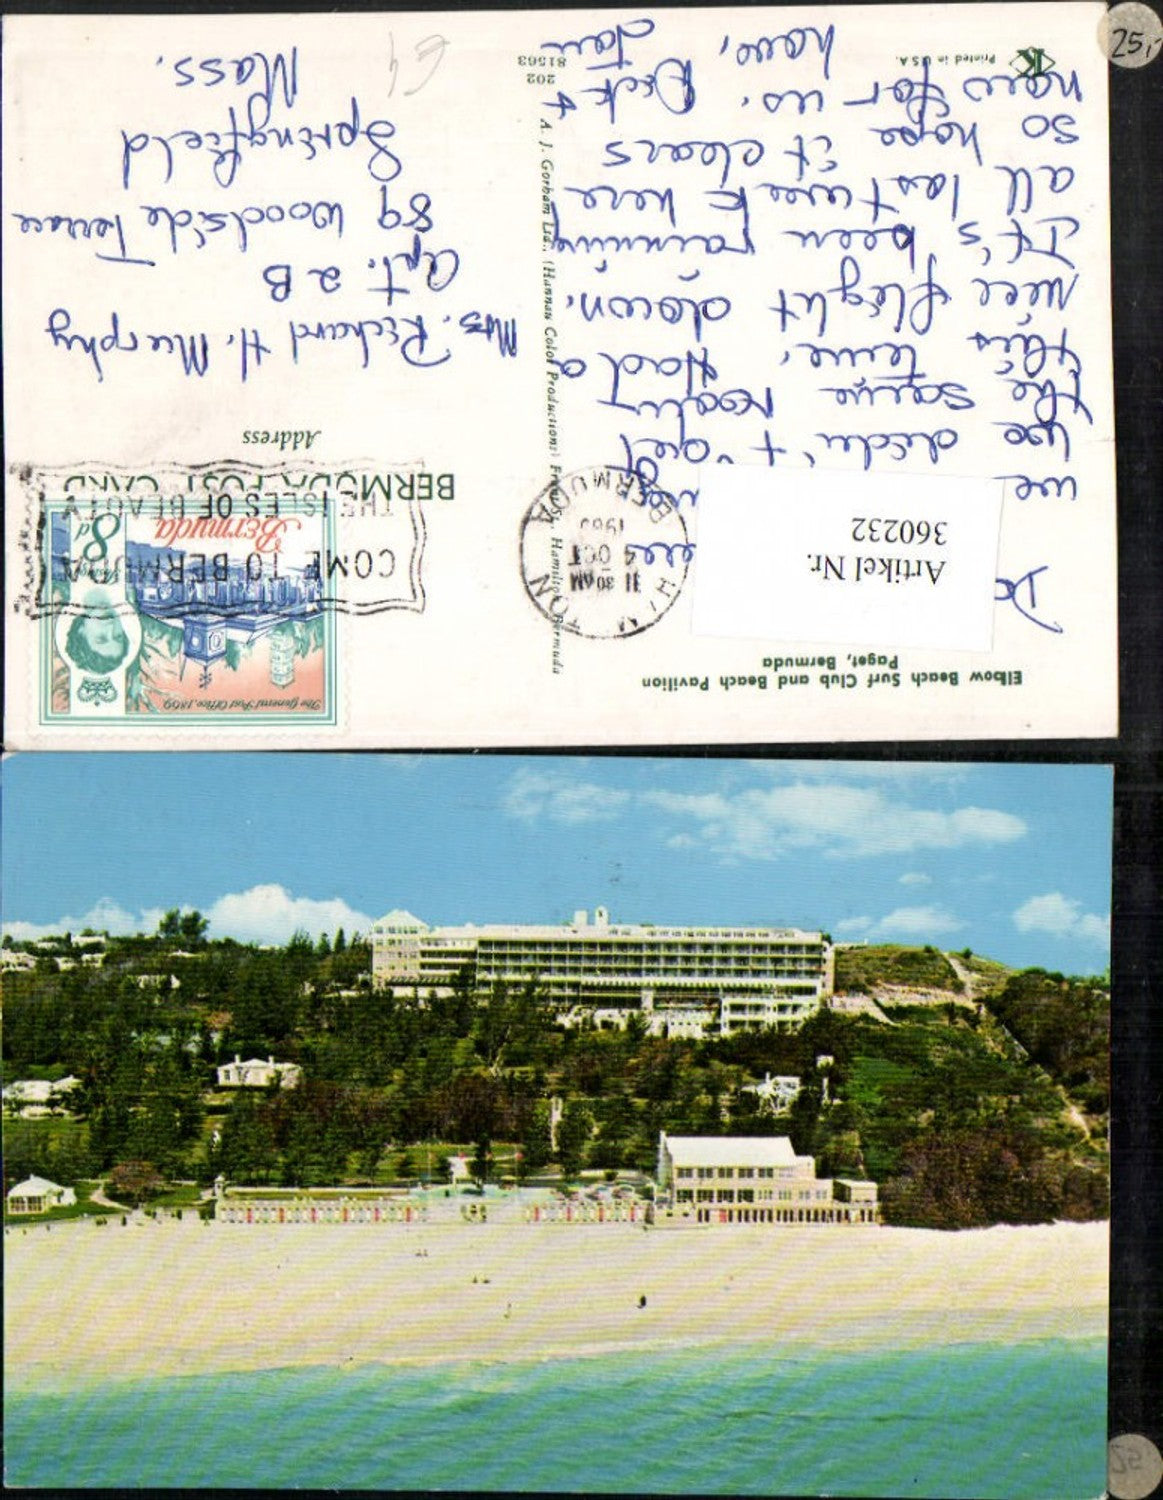 25,-
Elbow Beach Surf Club and Beach Pavilion
Paget, Bermuda
Artikel Nr.
360232
we
we didn't get
the same room
this time. Had a
nice flight down.
It's been raining
all last week here
so hope it clears
now for us. Dick &
have, Jan
Printed in U.S.A.
K
A. J. Gorham Ltd., (Hannau Color Productions) Front St., Hamilton, Bermuda
202
81563
HAMILTON
11 30 AM
4 OCT
196
BERMUDA
COME TO BERMUDA
THE ISLES OF BEAUTY
The General Post Office, 1869
Bermuda
8d
BERMUDA POST CARD
Address
Mrs. Richard H. Murphy
Apt. 2B
89 Woodside Terrace
Springfield
Mass.